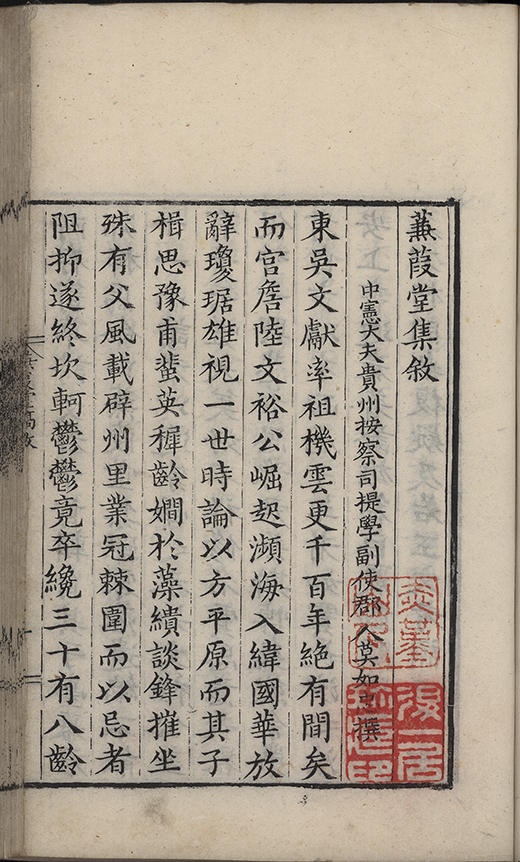 蒹葭堂集敘
中憲大夫貴州按察司提學副使郡人莫如忠撰
東吳文獻率祖機雲更千百年絕有間矣
而宮詹陸文裕公崛起瀕海入緯國華放
辭瓊琚雄視一世時論以方平原而其子
楫思豫甫蜚英穉齡嫺於藻繢談鋒摧坐
殊有父風載辟州里業冠棘圍而以忌者
阻抑遂終坎軻鬱鬱竟卒纔三十有八齡